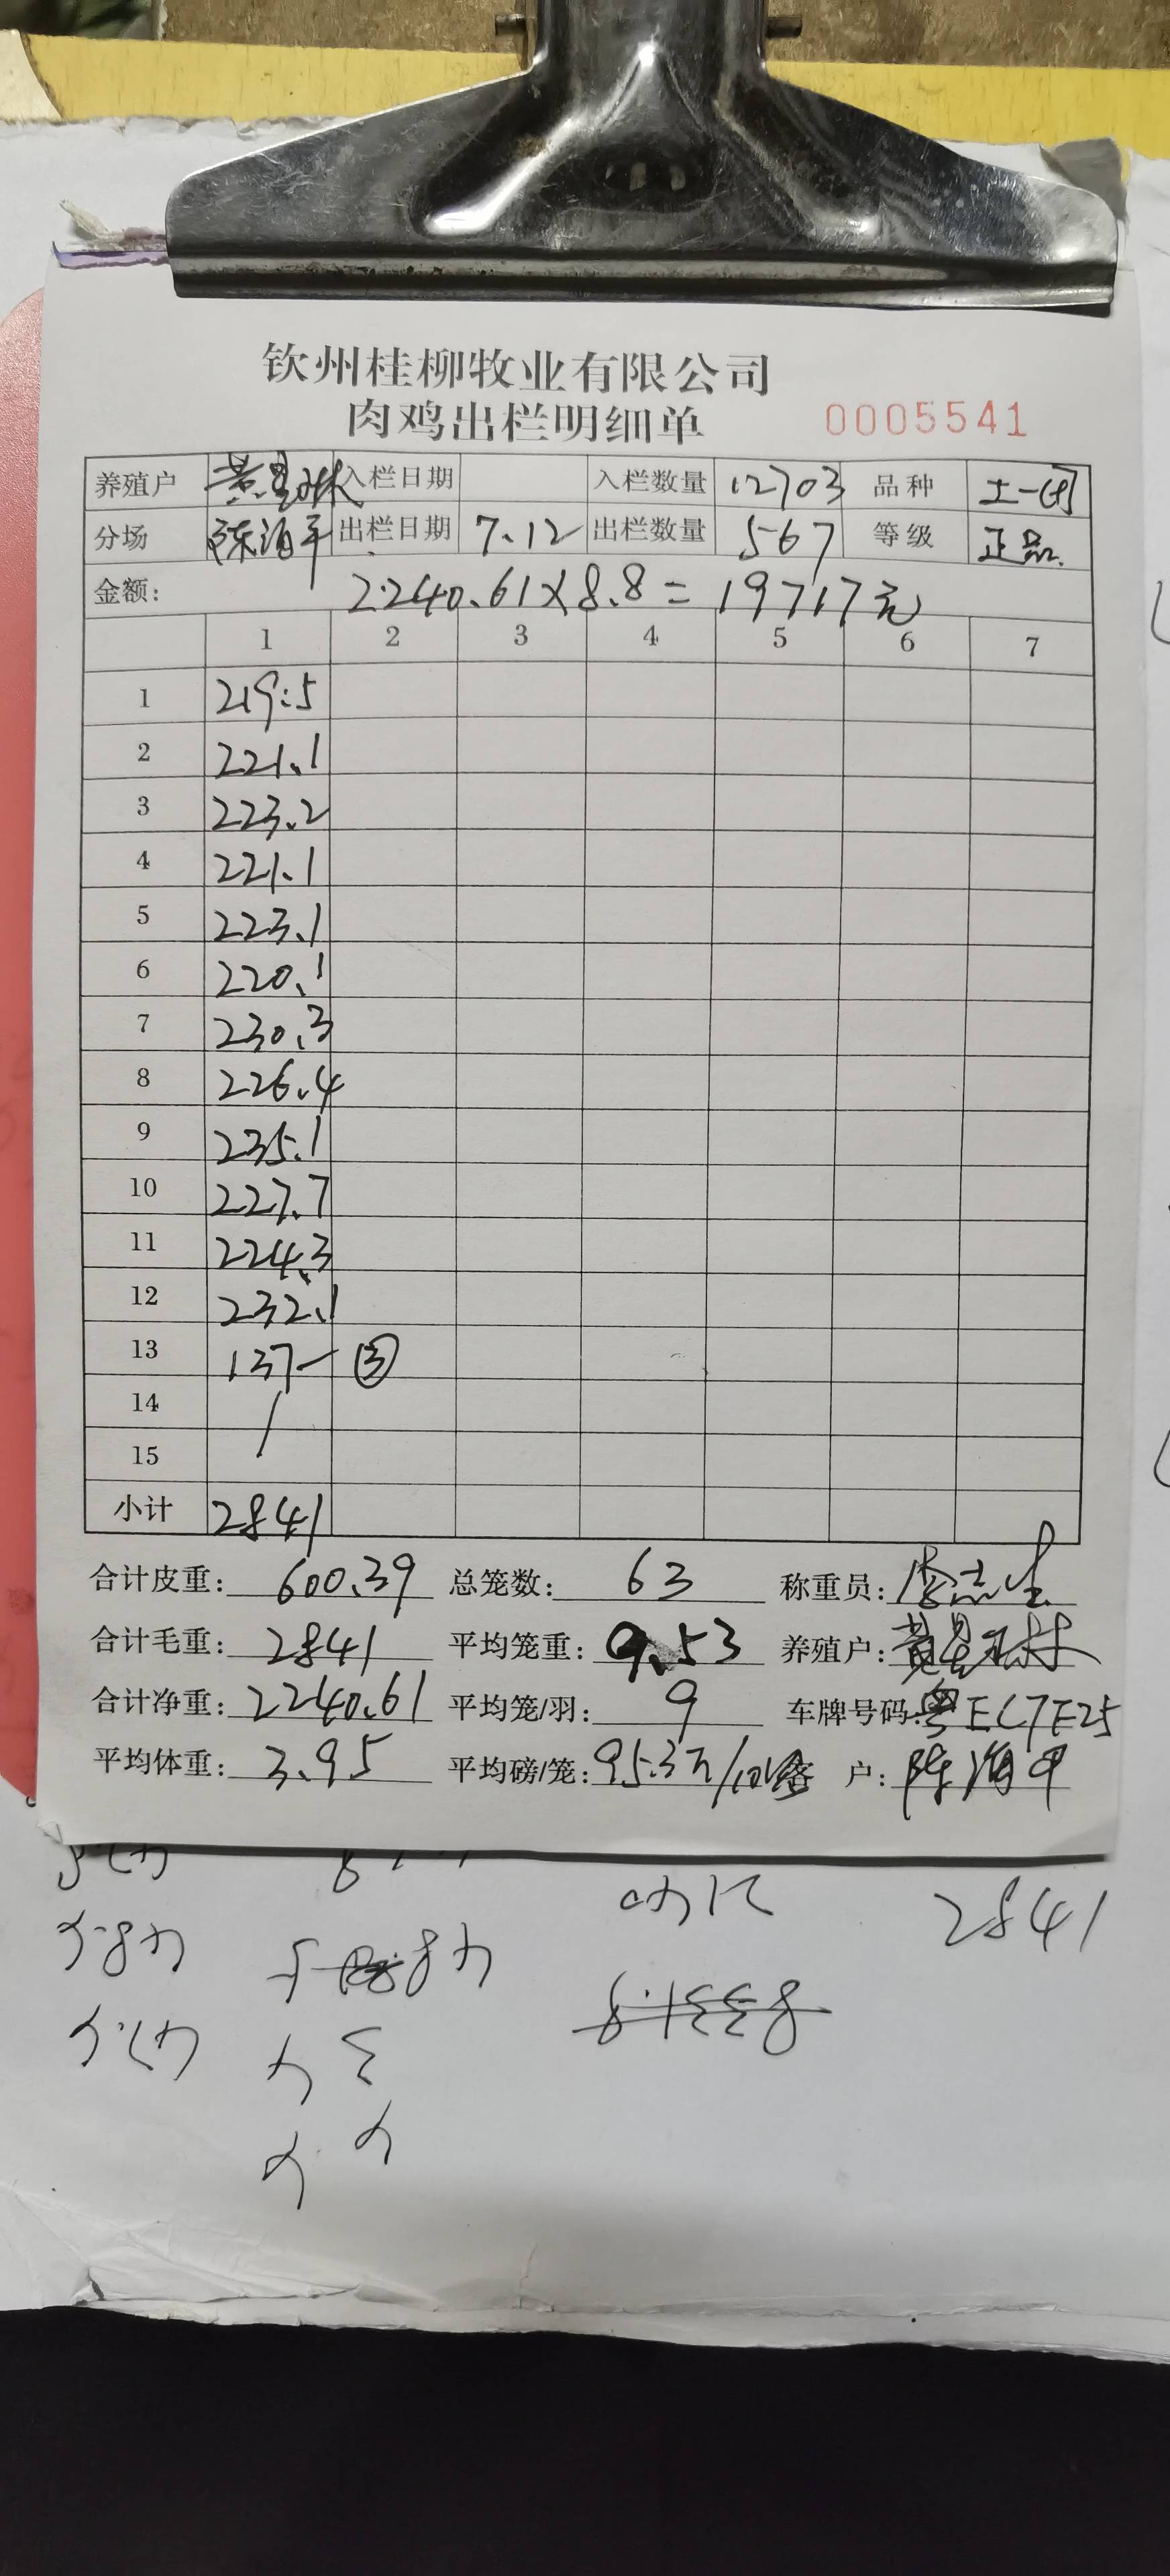 钦州桂柳牧业有限公司
肉鸡出栏明细单 0005541
养殖户 入栏日期 入栏数量 12703 品种 土一
分场 出栏日期 7.12 出栏数量 567 等级 正品.
金额: 2240.61×8.8=19717元
1 2 3 4 5 6 7
1 219.5
2 221.1
3 223.2
4 221.1
5 223.1
6 220.1
7 230.3
8 226.4
9 235.1
10 227.7
11 224.3
12 232.1
13 137一③
14 /
15
小计 2841
合计皮重: 600.39 总笼数: 63 称重员:
合计毛重: 2841 平均笼重: 9.53 养殖户:
合计净重: 2240.61 平均笼/羽: 9 车牌号码: 粤EC7E25
平均体重: 3.95 平均磅/笼: 95.3 客户: 陈海
2841